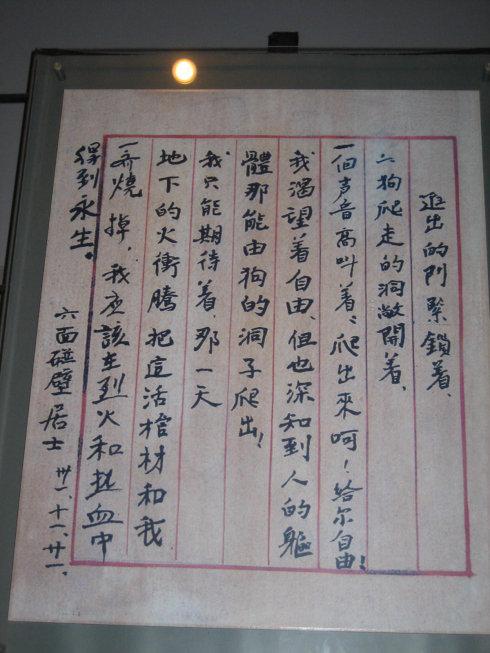 進出的门緊鎖着、
为狗爬走的洞敞開着、
一個声音高叫着：爬出來呵！給尔自由！
我渴望着自由、但也深知到人的軀
體那能由狗的洞子爬出！
我只能期待着、那一天
地下的火衝騰把這活棺材和我
一齊燒掉，我应該在烈火和热血中
得到永生。
六面碰壁居士 卅一、十一、廿一、